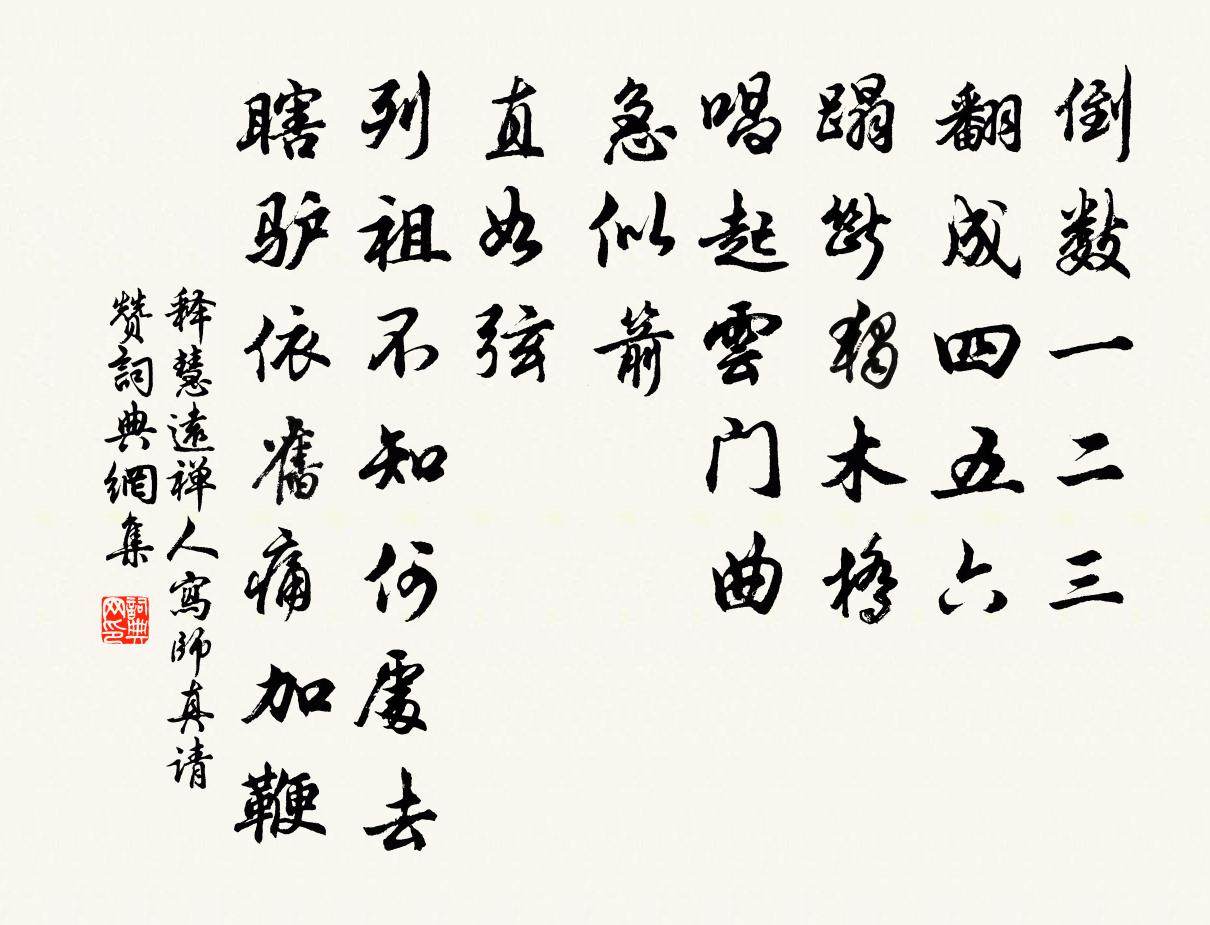 倒数一二三
翻成四五六
蹋断独木橋
唱起雲门曲
急似箭
直如弦
列祖不知何處去
瞎驴依舊痛加鞭
释慧遠禅人寫師真请
赞詞典網集
詞典网印